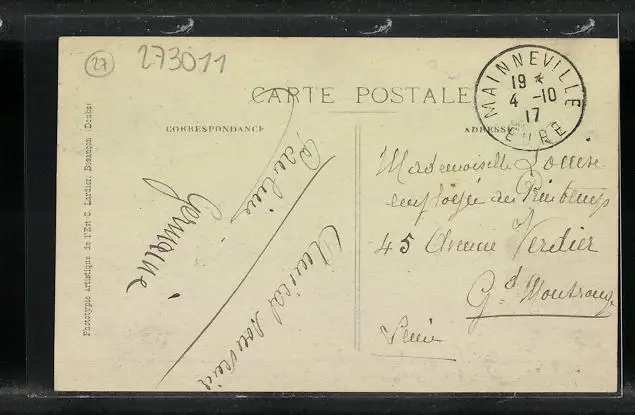 27
273011
CARTE POSTALE
CORRESPONDANCE
ADRESSE
MAINNEVILLE
19 *
4 -10
17
EURE
Phototypie artistique de l'Est C. Lardier, Besançon (Doubs)
Pauline
Germaine
Amical Souvenir
Mademoiselle Louise
employée au Printemps
45 Avenue Verdier
Gd Montrouge
Seine